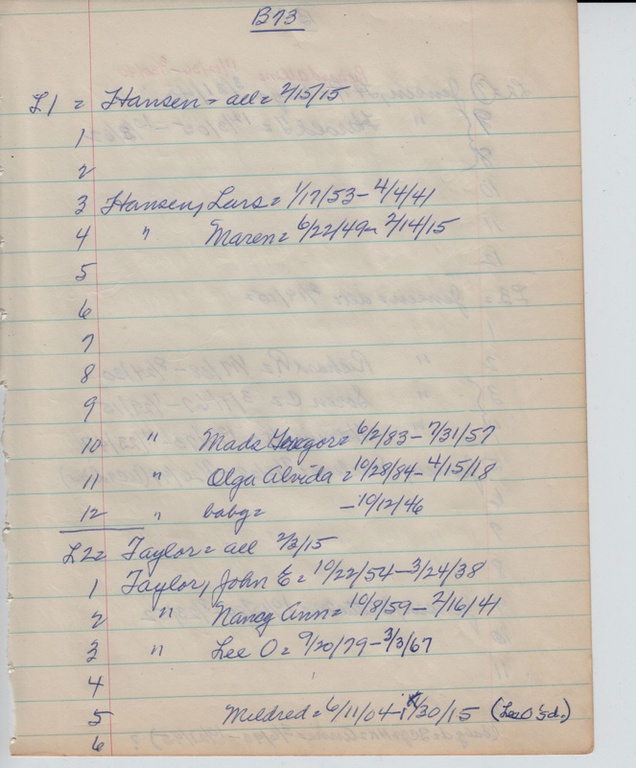 B73
L1 = Hansen = all = 2/15/15
1
2
3 Hansen, Lars = 1/17/53 - 4/4/41
4 " Maren = 6/22/49 - 2/14/15
5
6
7
8
9
10 " Mads = 6/2/83 - 7/31/57
11 " Olga Alvida = 10/28/84 - 4/15/18
12 " baby = - 10/12/46
L2 = Taylor = all 2/3/15
1 Taylor, John E = 10/22/54 - 3/24/38
2 " Nancy Ann = 10/8/59 - 2/16/41
3 " Lee O = 9/20/79 - 3/3/67
4
5 Mildred = 6/11/04 - /30/15 (Lee O's d.)
6